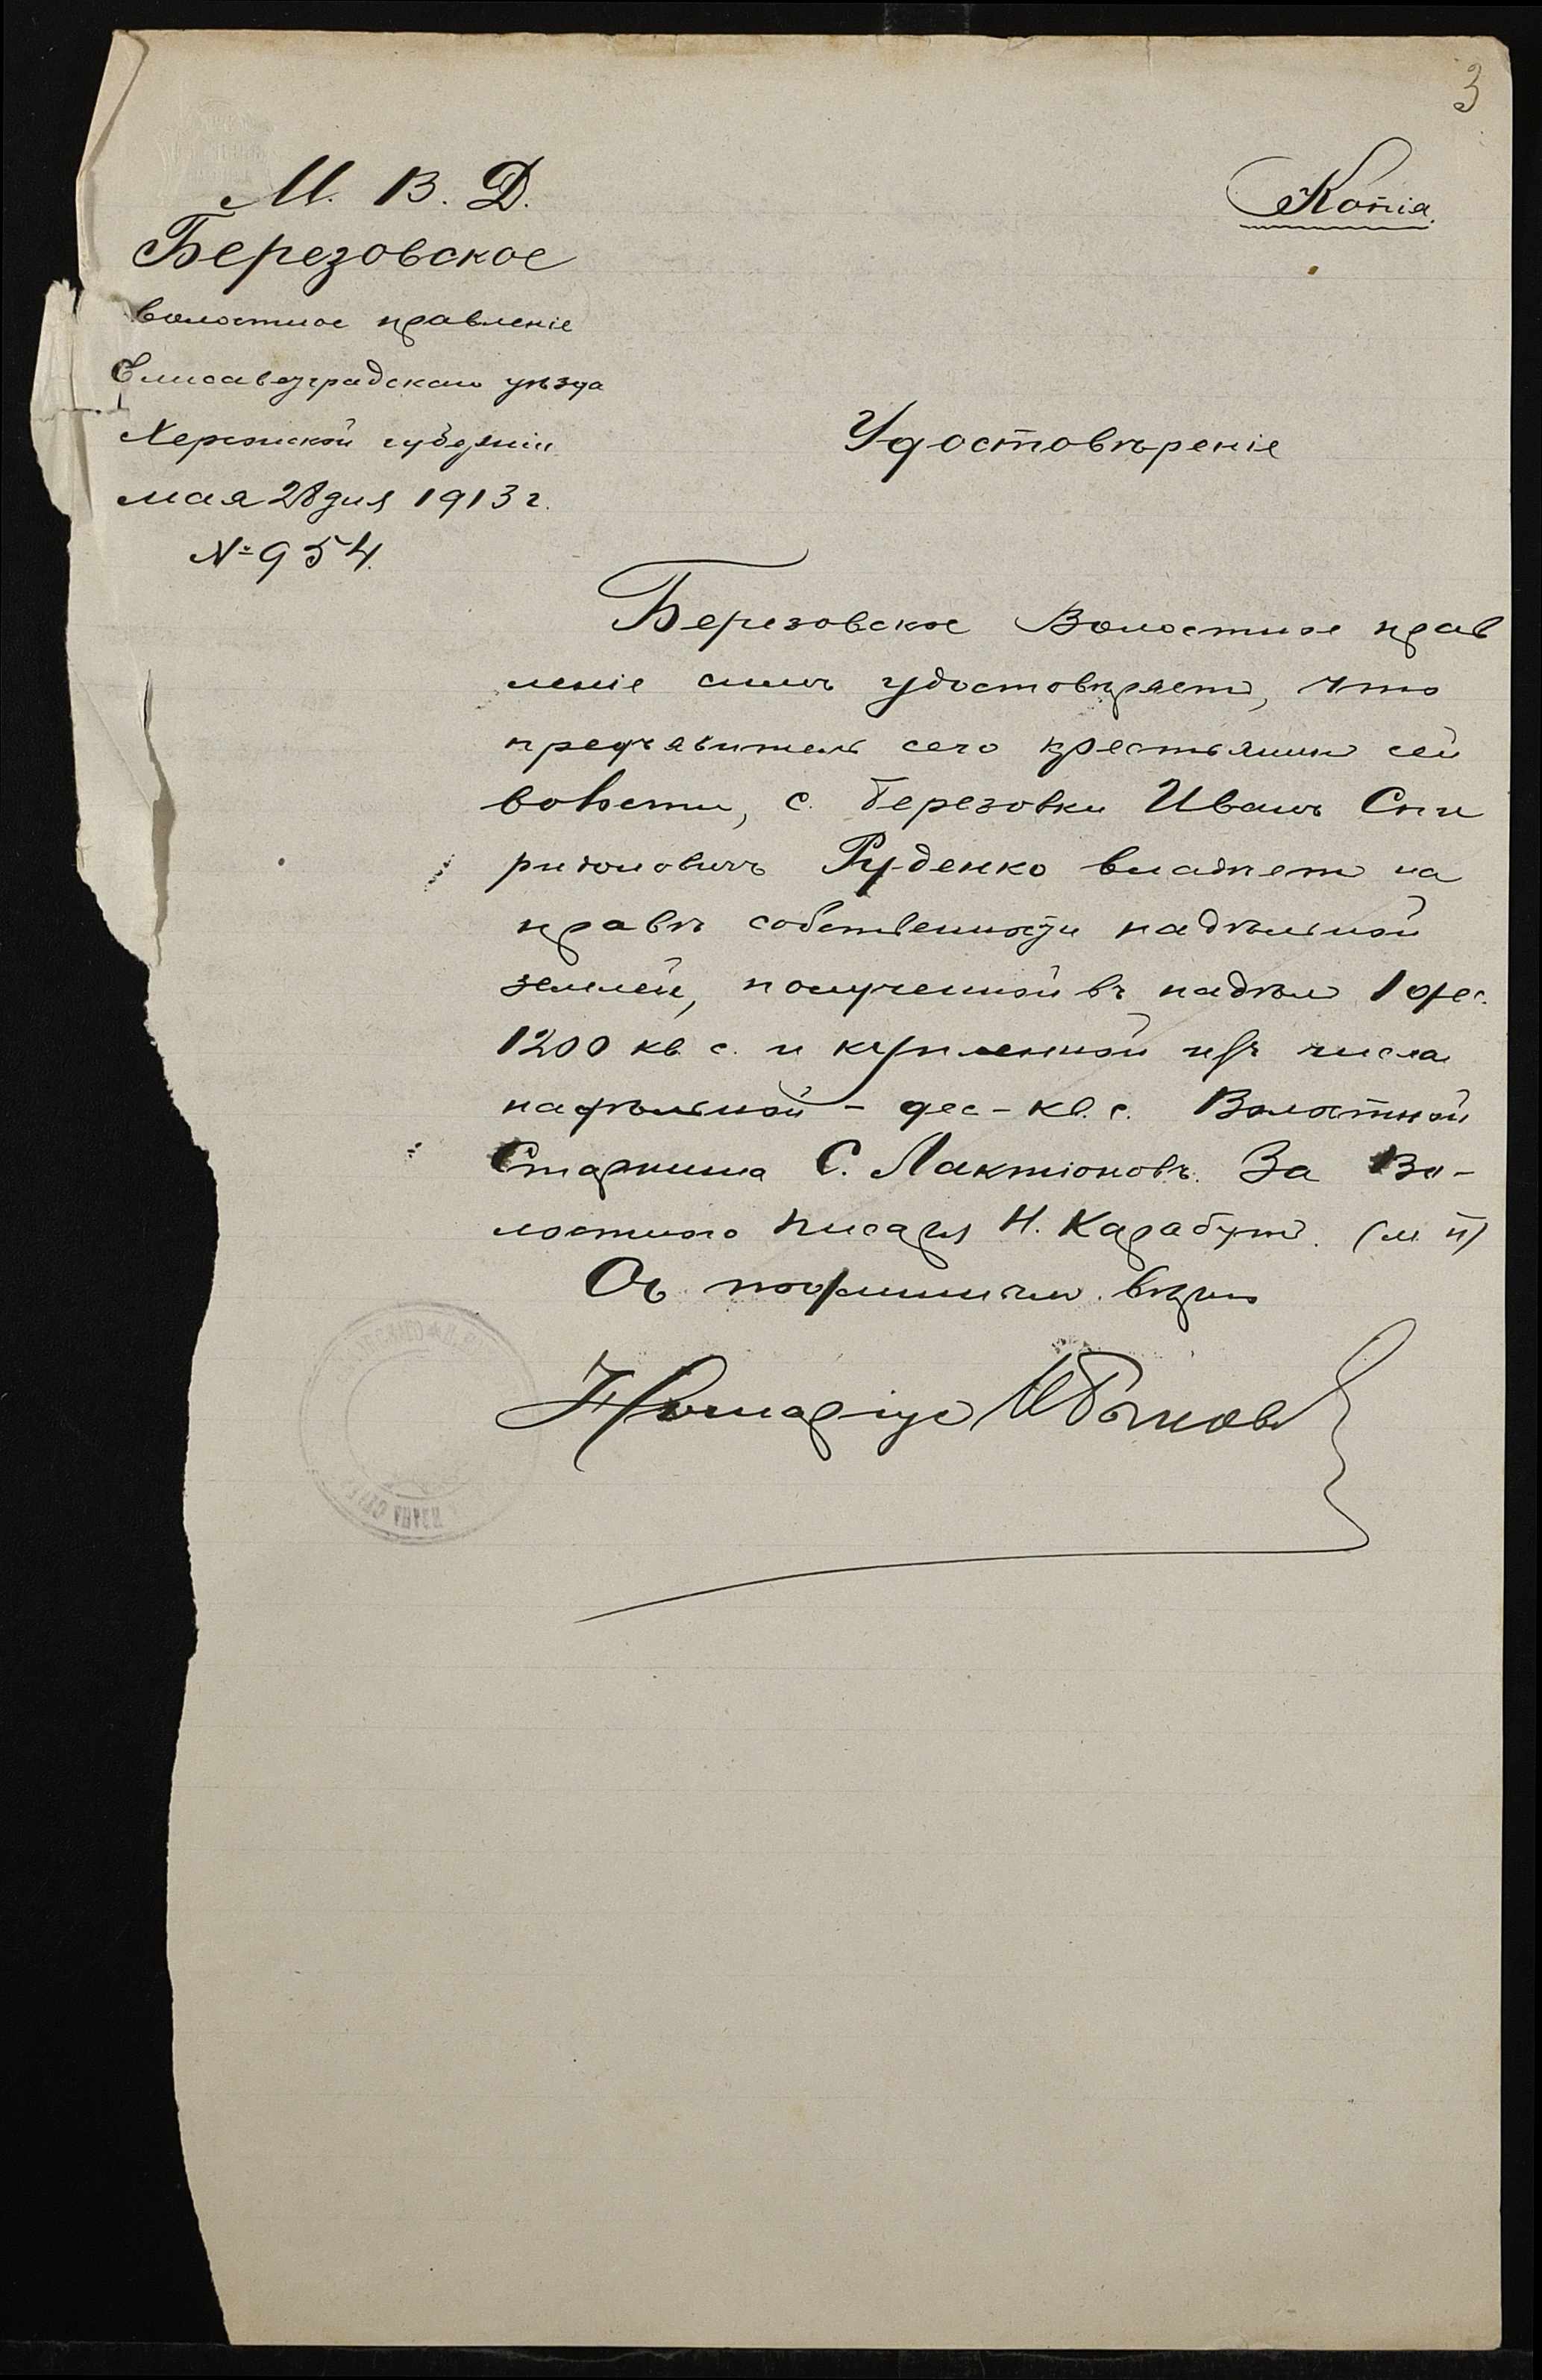 3
М. В. Д.
Копія.
Березовское
волостное правленіе
Елисаветградскаго уѣзда
Херсонской губерніи
мая 28 дня 1913 г.
№ 954.
Удостовѣреніе
Березовское Волостное прав
леніе симъ удостовѣряетъ, что
предъявитель сего крестьянинъ сей
волости, с. Березовки Иванъ Спи
ридоновичъ Руденко владѣетъ на
правѣ собственности надѣльной
землей, полученной въ надѣлъ 1 дес.
1200 кв. с. и купленной изъ числа
надѣльной - дес - кв. с. Волостной
Старшина С. Лактіоновъ. За Во-
лостного писаря Н. Карабутъ. (м. п)
Съ подлиннымъ вѣрно
Нотаріусъ